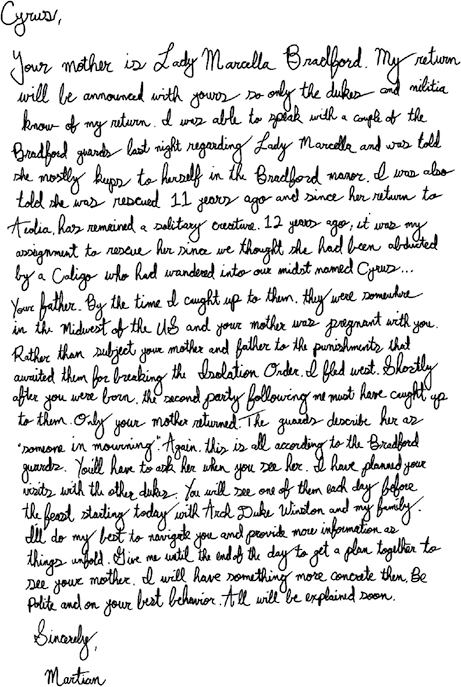 Cyrus,
Your mother is Lady Marcella Bradford. My return
will be announced with yours so only the dukes and militia
know of my return. I was able to speak with a couple of the
Bradford guards last night regarding Lady Marcella and was told
she mostly keeps to herself in the Bradford manor. I was also
told she was rescued 11 years ago and since her return to
Aeolia, has remained a solitary creature. 12 years ago, it was my
assignment to rescue her since we thought she had been abducted
by a Caligo who had wandered into our midst named Cyrus...
Your father. By the time I caught up to them, they were somewhere
in the Midwest of the US and your mother was pregnant with you.
Rather than subject your mother and father to the punishments that
awaited them for breaking the Isolation Order, I fled west. Shortly
after you were born, the second party following me must have caught up
to them. Only your mother returned. The guards describe her as
"someone in mourning". Again, this is all according to the Bradford
guards. You'll have to ask her when you see her. I have planned your
visits with the other dukes. You will see one of them each day before
the feast starting today with Arch Duke Winston and my family.
I'll do my best to navigate you and provide more information as
things unfold. Give me until the end of the day to get a plan together to
see your mother. I will have something more concrete then. Be
Polite and on your best behavior. All will be explained soon.
Sincerely,
Martian